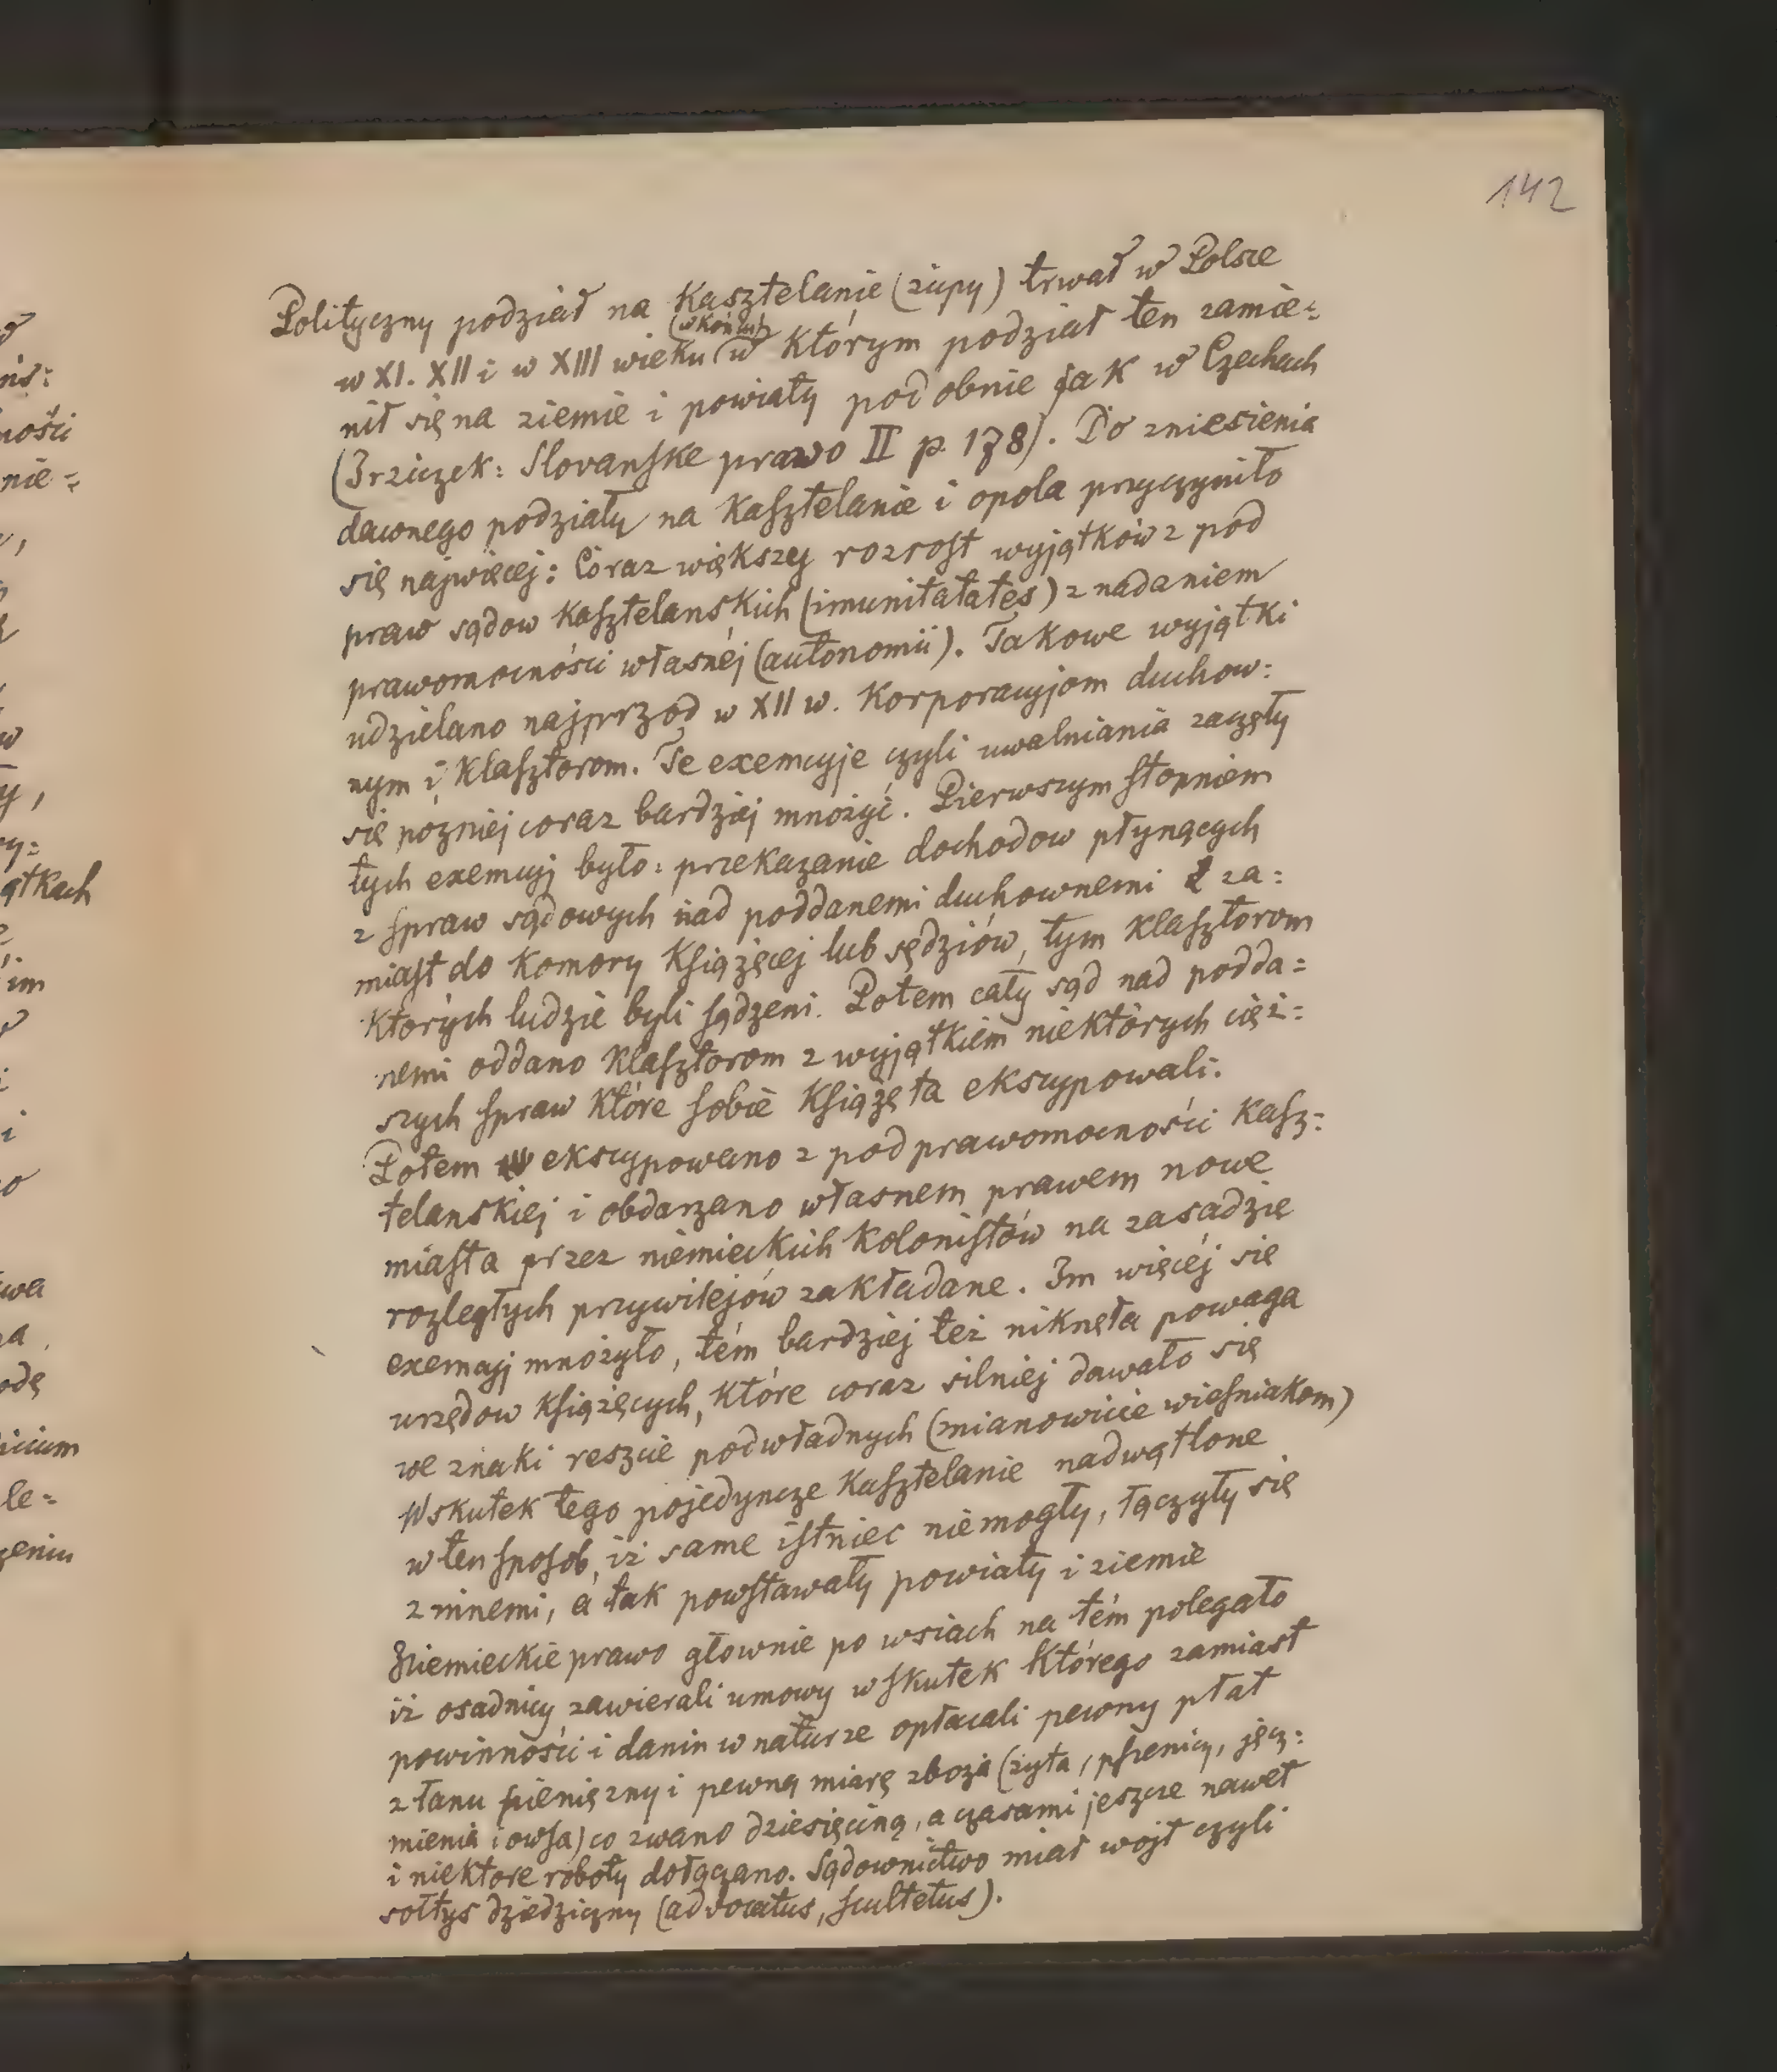 142
Polityczny podział na Kasztelanie (żupy) trwał w Polsce
(w końcu)
w XI. XII i w XIII wieku w którym podział ten zamie=
nił się na ziemie i powiaty podobnie jak w Czechach
(Jrziczek: Slovanske prawo II p. 178). Do zniesienia
dawnego podziału na Kasztelanie i opola przyczyniło
się najwięcej: Coraz większy rozrost wyjątków z pod
praw sądow Kasztelańskich (imunitatates) z nadaniem
prawomocności własnéj (autonomii). Takowe wyjątki
udzielano najprzod w XII w. Korporacyjom duchow=
nym i Klasztorom. Te exemcyje czyli uwalniania zaczęły
się później coraz bardziéj mnożyć. Pierwszym stopniem
tych exemcyj było: przekazanie dochodow płynących
z spraw sądowych nad poddanemi duchownemi za=
miast do Komory Książęcej lub sędziów, tym Klasztorom
których ludzie byli sądzeni. Potem cały sąd nad podda=
nemi oddano Klasztorom z wyjątkiem niektórych cięż=
szych spraw które sobie Książęta ekscypowali.
Potem ekscypowano z pod prawomocności Kasz=
telanskiej i obdarzano własnem prawem nowe
miasta przez niemieckich Kolonistów na zasadzie
rozległych przywilejów zakładane. Im więcéj się
exemcyj mnożyło, tém bardziej też niknęła powaga
urzędow Książęcych, Które coraz silniej dawało się
we znaki reszcie podwładnych (mianowicie wieśniakom)
Wskutek tego pojedyncze Kasztelanie nadwątlone
w ten sposób, iż same istniec niemogły, łączyły się
z innemi, a tak powstawały powiaty i ziemie
Niemieckie prawo głownie po wsiach na tém polegało
iż osadnicy zawierali umowy wskutek Którego zamiast
powinności i danin w naturze opłacali pewny płat
z łanu pienięzny i pewną miarę zboża (żyta, pszenicy, jęcz=
mienia i owsa) co zwano dziesięciną, a czasami jeszcze nawet
i niektore roboty dołączano. Sądownictwo miał wojt czyli
sołtys dziedziczny (advocatus, scultetus).